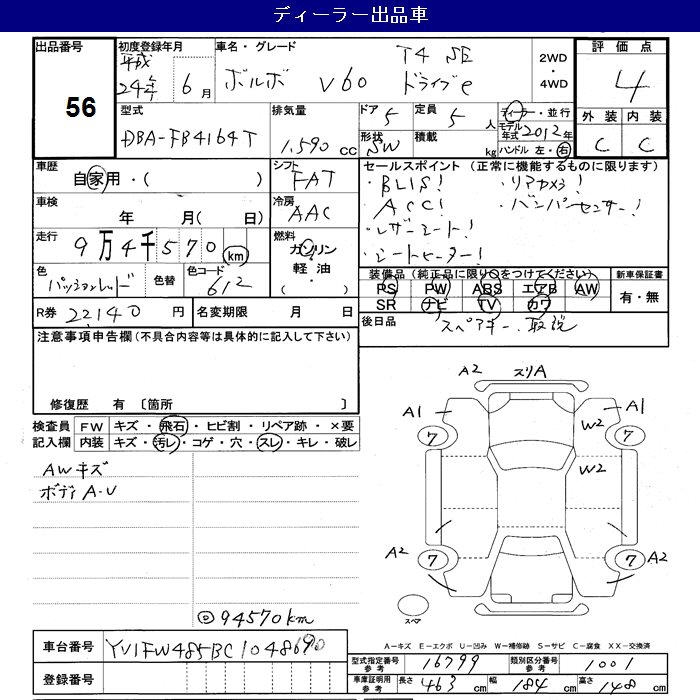 ディーラー出品車
出品番号 56
初度登録年月 平成 24年 6月
車名・グレード ボルボ V60 T4 SE ドライブe
2WD・4WD
評価点 4
外装 C 内装 C
型式 DBA-FB4164T
排気量 1.590 cc
ドア 5 定員 5 人
形状 SW 積載 kg
ディーラー・並行
モデル年式 2012年
ハンドル 左・右
車歴 自家用・( )
シフト FAT
車検 年 月( 日)
冷房 AAC
走行 9万4千570km
燃料 ガソリン・軽油・( )
色 パッションレッド 色替 色コード 612
R券 22140円 名変期限 月 日
セールスポイント(正常に機能するものに限ります)
・BLIS! ・リアカメラ!
・ACC! ・バンパーセンサー!
・レザーシート!
・シートヒーター!
装備品(純正品に限り○をつけてください) 新車保証書
PS PW ABS エアB AW 有・無
SR ナビ TV カワ
後日品 スペアキー、取説
注意事項申告欄(不具合内容等は具体的に記入して下さい)
修復歴 有 〔箇所 〕
検査員記入欄 FW キズ・飛石・ヒビ割・リペア跡・×要
内装 キズ・汚レ・コゲ・穴・スレ・キレ・破レ
AWキズ
ボディA-U
◎94570km
A2 スリA
A1 A1
7 W2 7
W2
A2 7 7 A2
スペア
A-キズ E-エクボ U-凹み W-補修跡 S-サビ C-腐食 XX-交換済
車台番号 YV1FW485BC1048690
登録番号
型式指定番号参考 16799 類別区分番号参考 1001
車庫証明用参考 長さ 463cm 幅 184cm 高さ 148cm